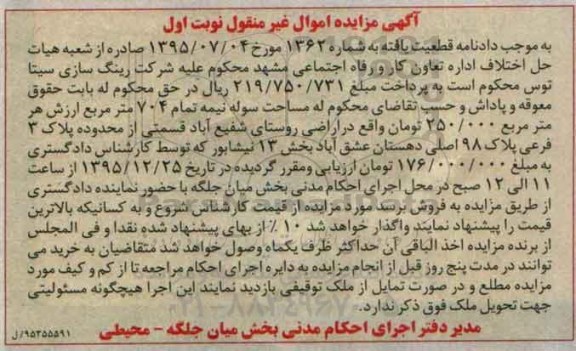 آگهی مزایده اموال غیر منقول نوبت اول
به موجب دادنامه قطعیت یافته به شماره ۱۳۶۲ مورخ ۱۳۹۵/۰۷/۰۴ صادره از شعبه هیات
حل اختلاف اداره تعاون کار و رفاه اجتماعی مشهد محکوم علیه شرکت رینگ سازی سیتا
توس محکوم است به پرداخت مبلغ ۲۱۹/۷۵۰/۷۳۱ ریال در حق محکوم له بابت حقوق
معوقه و پاداش و حسب تقاضای محکوم له مساحت سوله نیمه تمام ۷۰۴ متر مربع ارزش هر
متر مربع ۲۵۰/۰۰۰ تومان واقع دراراضی روستای شفیع آباد قسمتی از محدوده پلاک ۳
فرعی پلاک ۹۸ اصلی دهستان عشق آباد بخش ۱۳ نیشابور که توسط کارشناس دادگستری
به مبلغ ۱۷۶/۰۰۰/۰۰۰ تومان ارزیابی ومقرر گردیده در تاریخ ۱۳۹۵/۱۲/۲۵ از ساعت
۱۱ الی ۱۲ صبح در محل اجرای احکام مدنی بخش میان جلگه با حضور نماینده دادگستری
از طریق مزایده به فروش برسد مورد مزایده از قیمت کارشناس شروع و به کسانیکه بالاترین
قیمت را پیشنهاد نمایند واگذار خواهد شد ۱۰٪ از بهای پیشنهاد شده نقدا و فی المجلس
از برنده مزایده اخذ الباقی آن حداکثر ظرف یکماه وصول خواهد شد متقاضیان به خرید می
توانند در مدت پنج روز قبل از انجام مزایده به دایره اجرای احکام مراجعه تا از کم و کیف مورد
مزایده مطلع و در صورت تمایل از ملک توقیفی بازدید نمایند این اجرا هیچگونه مسئولیتی
جهت تحویل ملک فوق ذکر ندارد.
مدیر دفتر اجرای احکام مدنی بخش میان جلگه - محیطی
۹۵۲۵۵۵۹۱/ل